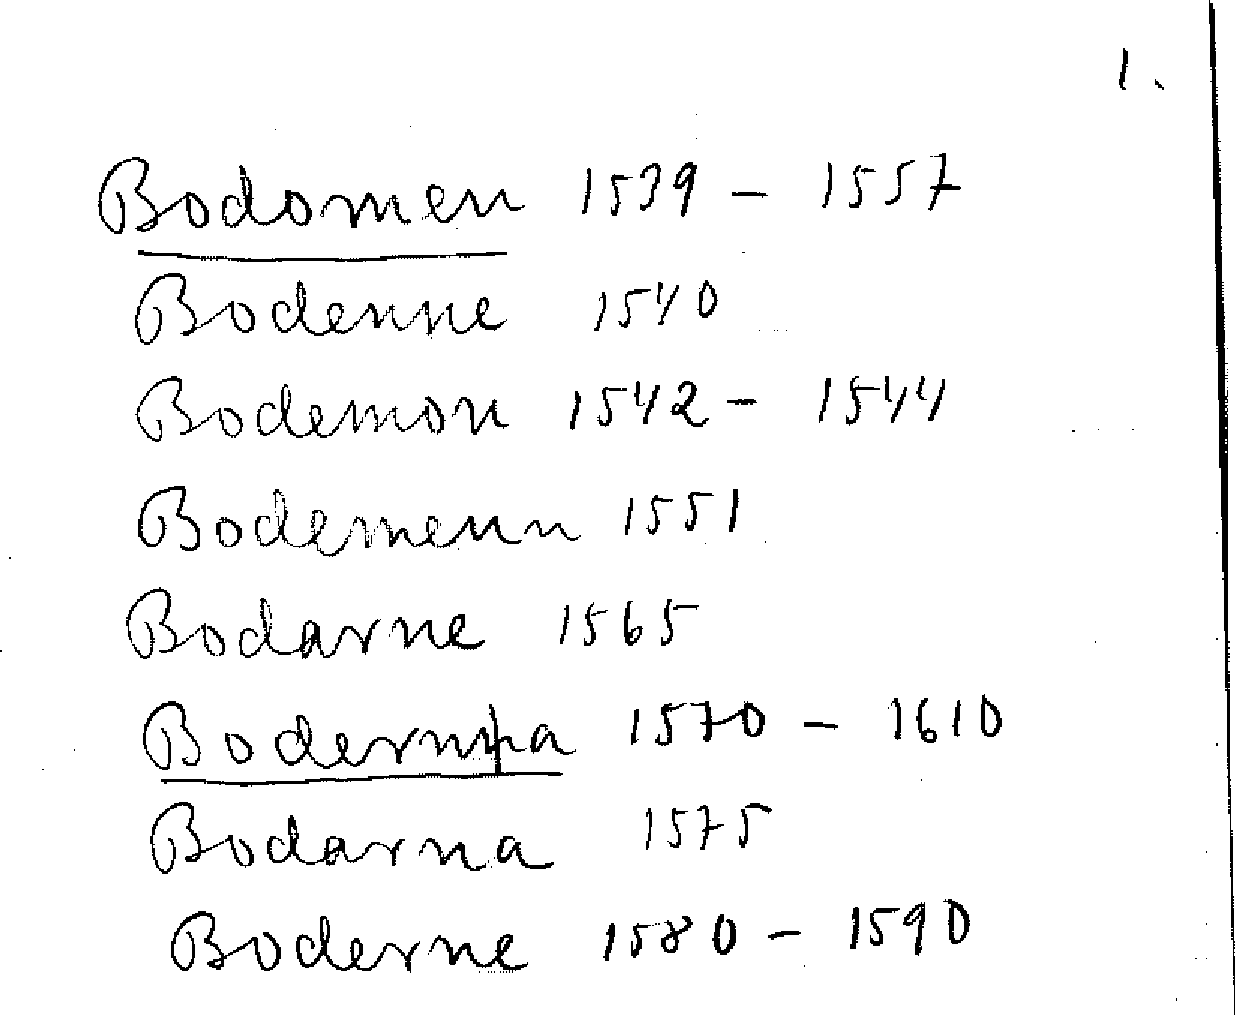 1.
Bodomen 1539 - 1557
Bodenne 1540
Bodemon 1542 - 1544
Bodemenn 1551
Bodarne 1565
1570 - 1610
Bodarna 1575
Boderne 1580 - 1590